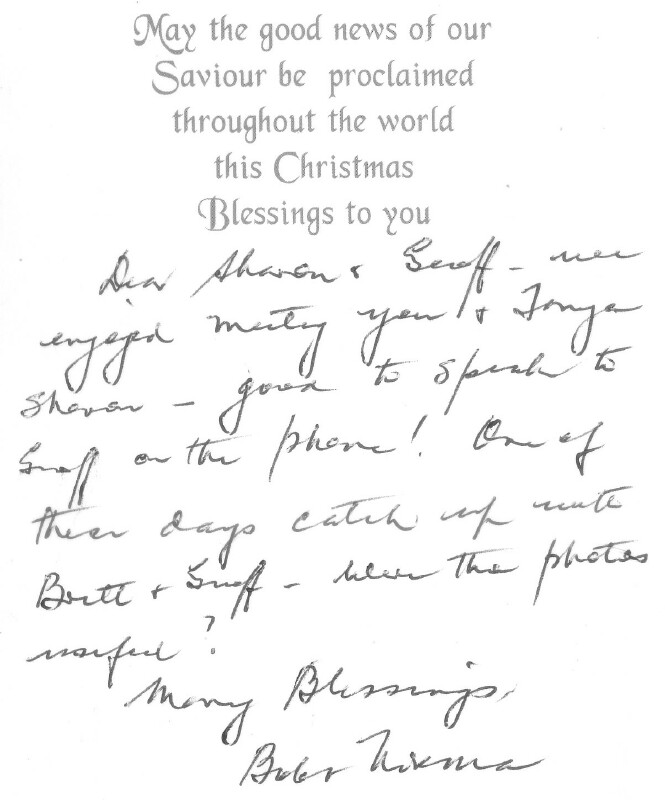 May the good news of our
Saviour be proclaimed
throughout the world
this Christmas
Blessings to you
Dear Sharon & Geoff - we
enjoyed meeting you & Tonya
Sharon - good to speak to
Geoff on the phone! One of
these days catch up with
Brett & Geoff - were the photos
useful?
Many Blessings,